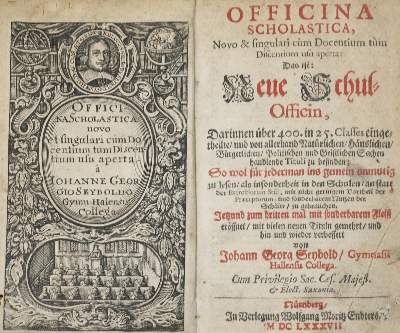 OFFICI
NA SCHOLASTICA
novo
et singulari cum Do
centium tum Discen
tium usu aperta
à
IOHANNE GEOR
GIO SEYBOLDO
Gymn. Halensis
Collega
OFFICINA
SCHOLASTICA,
Novo & singulari cùm Docentium tùm
Discentium usu aperta:
Das ist:
Neue Schul-
Officin,
Darinnen über 400. in 25. Classes einge-
theilte/ und von allerhand Natürlichen/ Häuslichen/
Bürgerlichen/ Politischen und Geistlichen Sachen
handlende Tituli zu befinden:
So wol für jederman ins gemein anmutig
zu lesen/ als insonderheit in den Schulen/ an statt
der Exercitiorum Styli, mit nicht geringem Vortheil der
Praeceptorum, und sonderbarem Nutzen der
Schüler/ zu gebrauchen.
Jetzund zum dritten mal mit sonderbarem Fleiß
eröffnet/ mit vielen neuen Titeln gemehret/ und
hin und wieder verbessert
von
Johann Georg Seybold/ Gymnasii
Hallensis Collega.
Cum Privilegio Sac. Caes. Majest.
& Elect. Saxoniae.
Nürnberg/
In Verlegung Wolfgang Moritz Endters,
M DC LXXXVII.